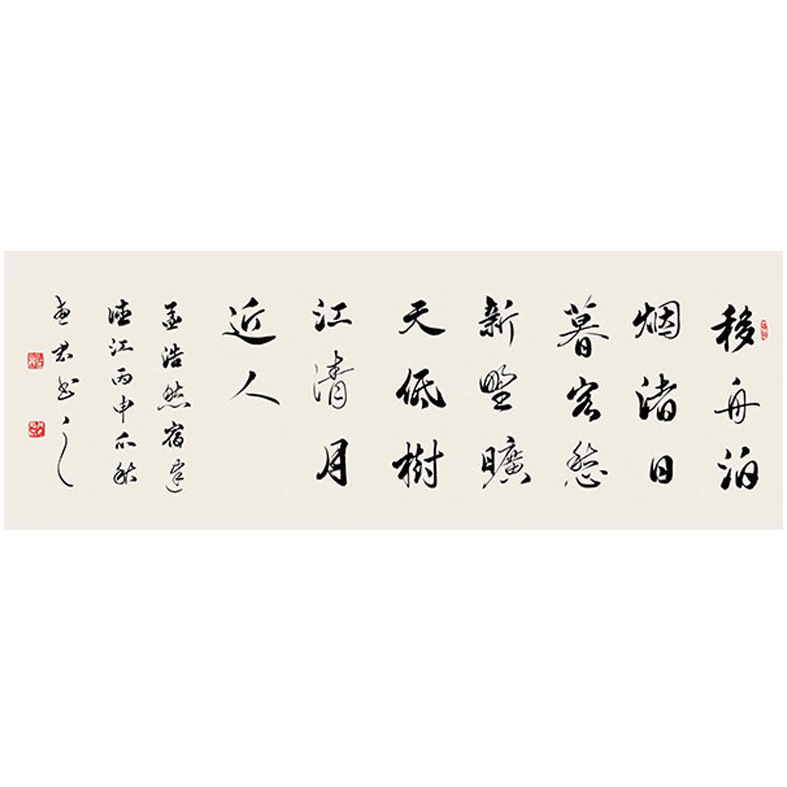 移舟泊
烟渚日
暮客愁
新野曠
天低樹
江清月
近人
孟浩然宿建
德江丙申秋
君书